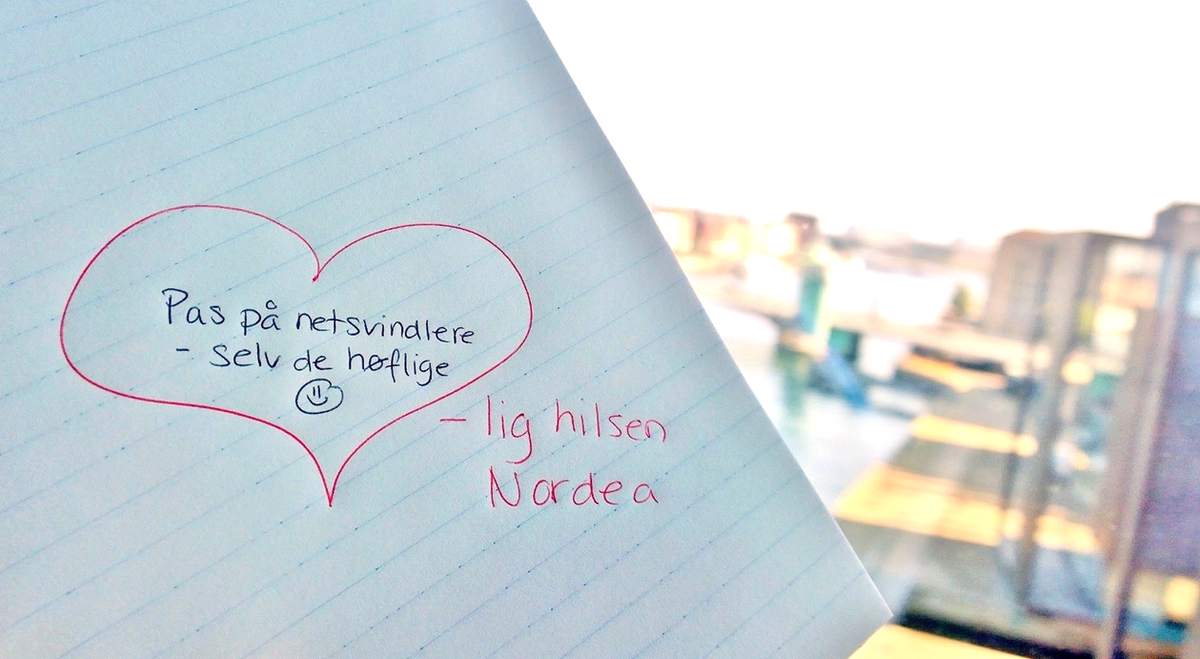 Pas på netsvindlere
- selv de høflige
- lig hilsen
Nordea